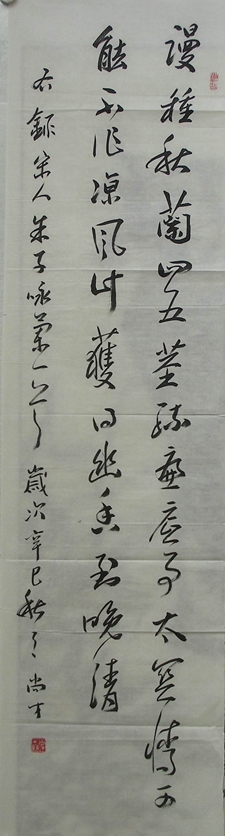 謾種秋蘭四五莖疏簾底事太關情可
能不作凉風計護得幽香到晚清
右錄宋人朱子咏蘭一首 歲次辛巳秋 尚才